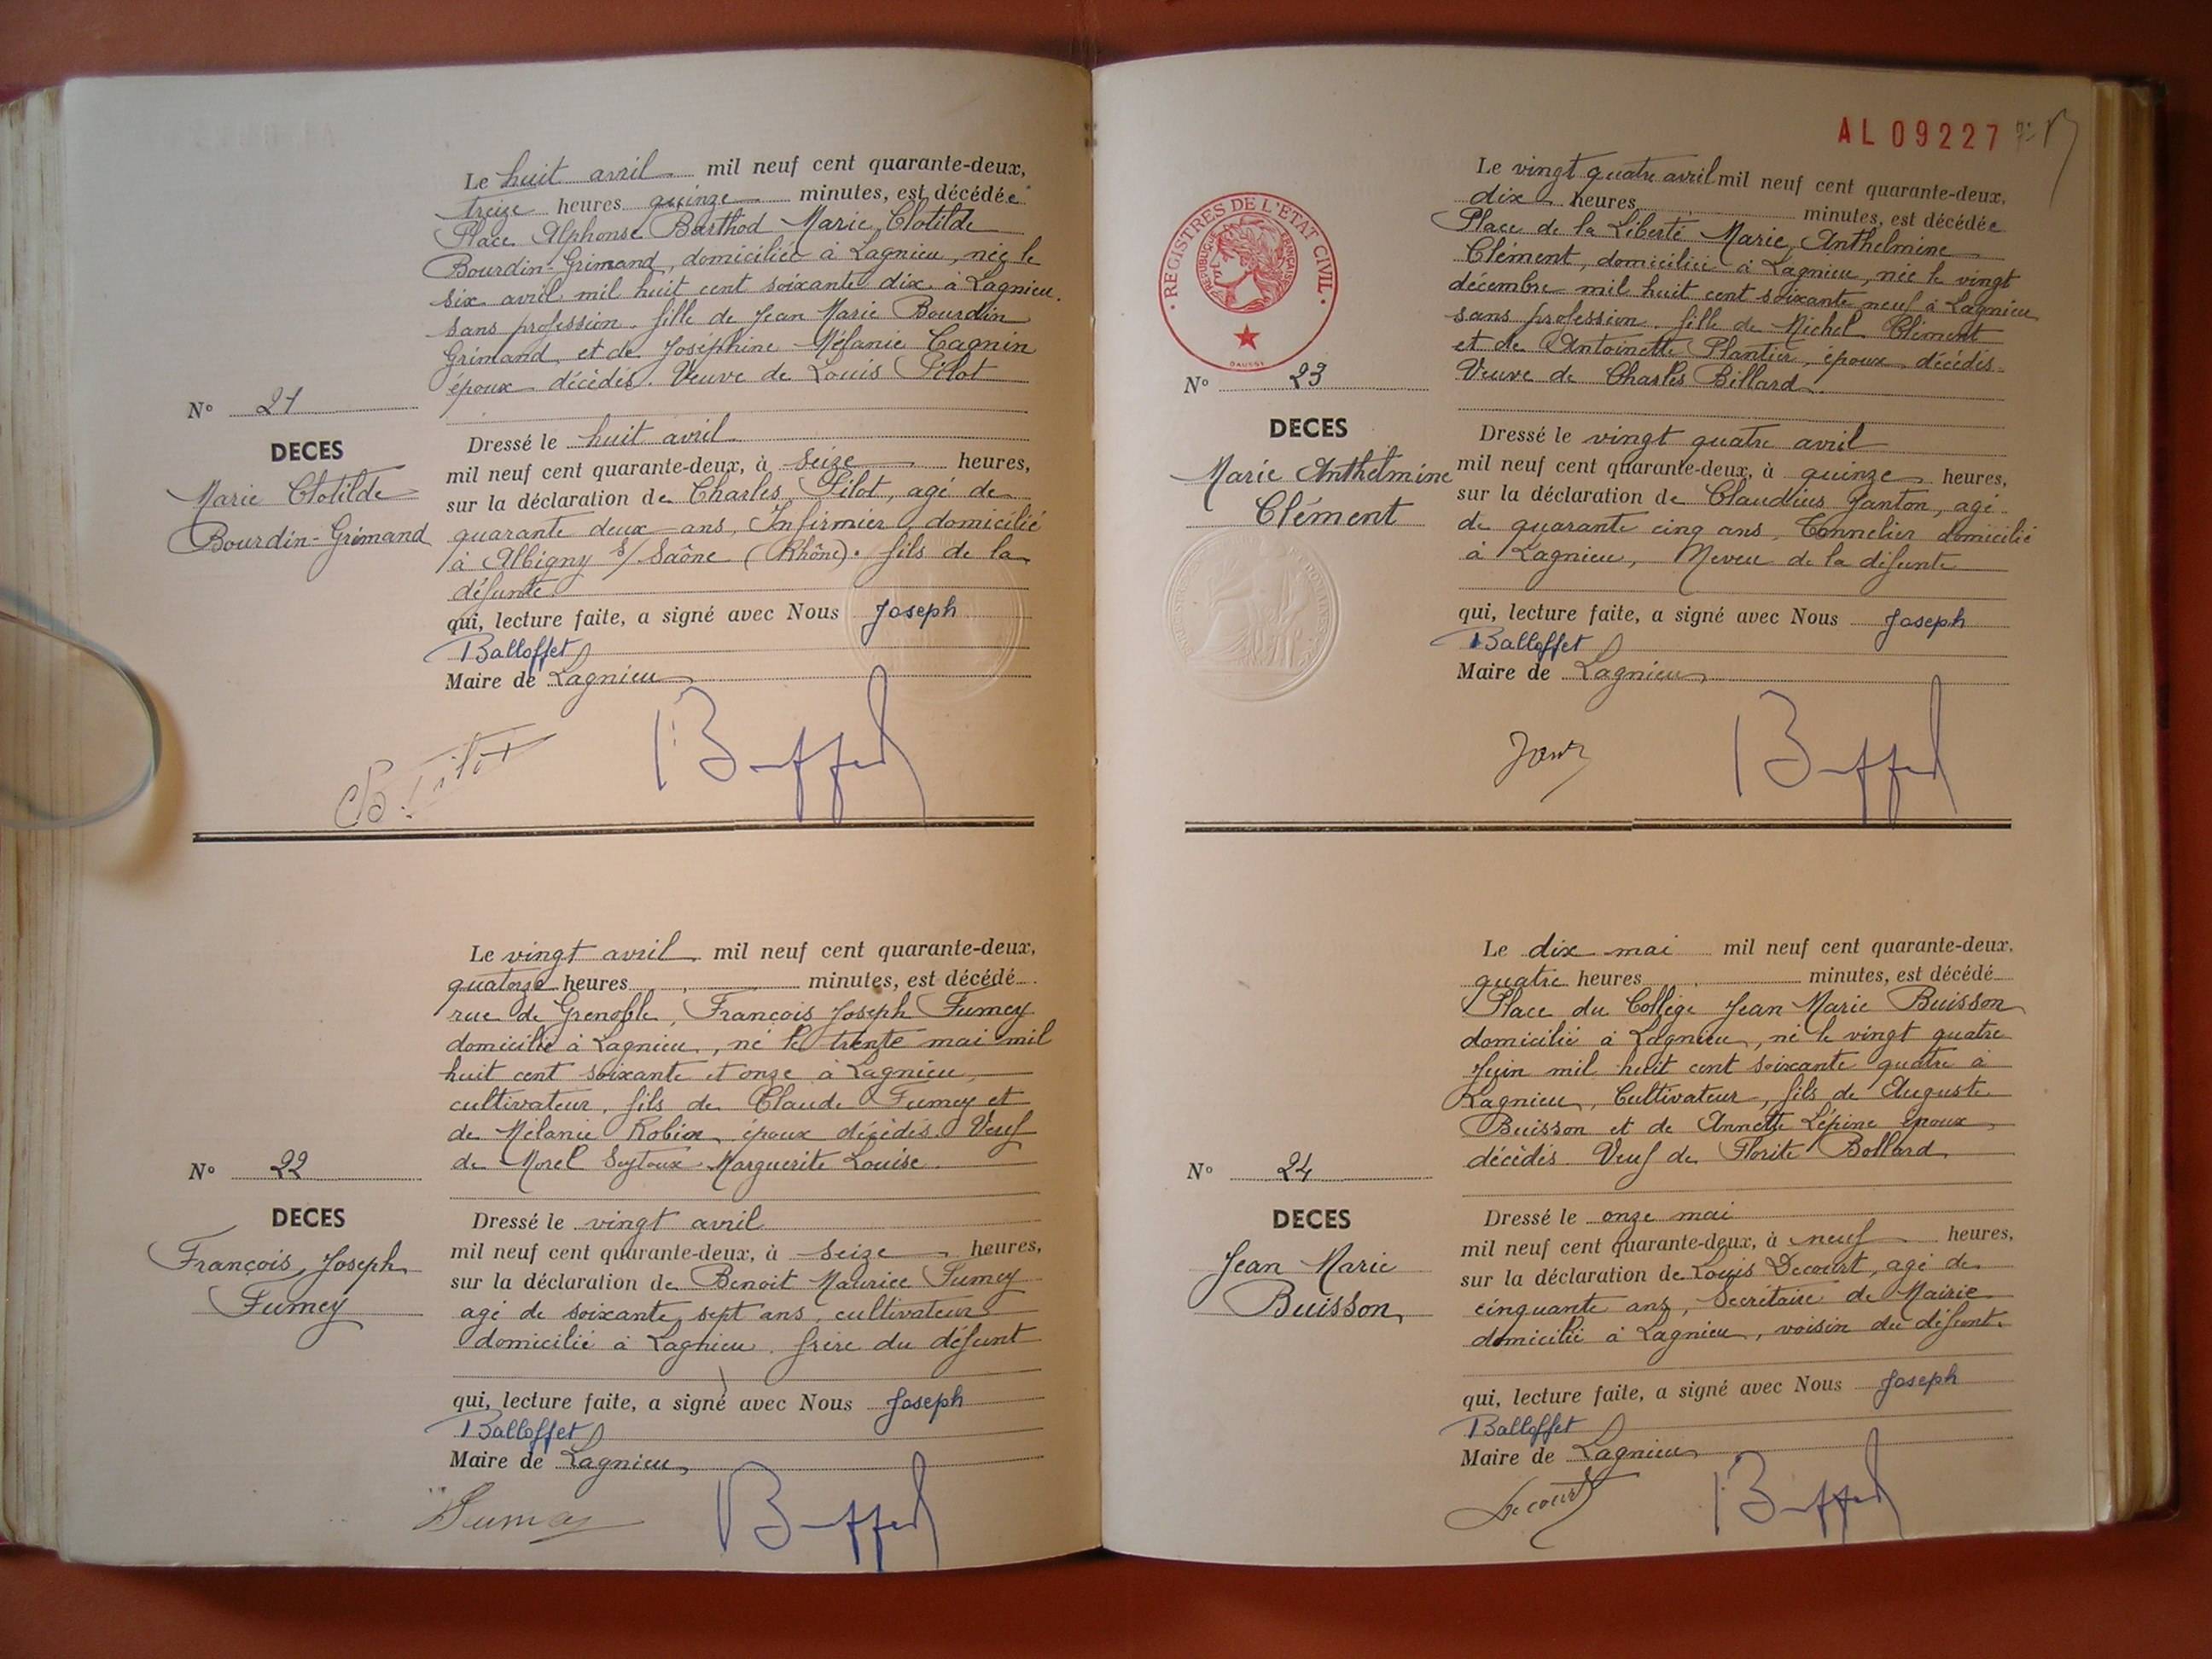 Le huit avril mil neuf cent quarante-deux,
treize heures quinze minutes, est décédée
Place Alphonse Barthod Marie Clotilde
Bourdin-Grimand, domiciliée à Lagnieu, née le
six avril mil huit cent soixante dix à Lagnieu.
sans profession. fille de Jean Marie Bourdin
Grimand et de Joséphine Mélanie Cagnin
époux décédés. Veuve de Louis Pilot
N° 21
DECES
Marie Clotilde
Bourdin-Grimand
Dressé le huit avril
mil neuf cent quarante-deux, à seize heures,
sur la déclaration de Charles Pilot, agé de
quarante deux ans, Infirmier, domicilié
à Albigny s/ Saône (Rhône). fils de la
défunte.
qui, lecture faite, a signé avec Nous Joseph
Balloffet
Maire de Lagnieu
Le vingt avril mil neuf cent quarante-deux,
quatorze heures minutes, est décédé
rue de Grenoble, François Joseph Fumey
domicilié à Lagnieu, né le trente mai mil
huit cent soixante et onze à Lagnieu,
cultivateur, fils de Claude Fumey et
de Mélanie Robin époux décédés. Veuf
de Morel Seytoux Marguerite Louise.
N° 22
DECES
François Joseph
Fumey
Dressé le vingt avril
mil neuf cent quarante-deux, à seize heures,
sur la déclaration de Benoit Maurice Fumey
agé de soixante sept ans, cultivateur
domicilié à Lagnieu. frère du défunt
qui, lecture faite, a signé avec Nous Joseph
Balloffet
Maire de Lagnieu
Fumey
AL 09227
Le vingt quatre avril mil neuf cent quarante-deux.
dix heures minutes, est décédée
Place de la Liberté Marie Anthelmine
Clément, domiciliée à Lagnieu, née le vingt
décembre mil huit cent soixante neuf à Lagnieu
sans profession. fille de Michel Clément
et de Antoinette Plantier, époux décédés.
Veuve de Charles Billard
REGISTRES DE L'ETAT CIVIL
REPUBLIQUE FRANÇAISE
N° 23
DECES
Marie Anthelmine
Clément
Dressé le vingt quatre avril
mil neuf cent quarante-deux, à quinze heures,
sur la déclaration de Claudius Janton, agé
de quarante cinq ans, Tonnelier domicilié
à Lagnieu, Neveu de la défunte
qui, lecture faite, a signé avec Nous Joseph
Balloffet
Maire de Lagnieu
Le dix mai mil neuf cent quarante-deux.
quatre heures minutes, est décédé
Place du Collège Jean Marie Buisson
domicilié à Lagnieu, né le vingt quatre
Juin mil huit cent soixante quatre à
Lagnieu, Cultivateur, fils de Auguste
Buisson et de Annette Lépine époux
décédés. Veuf de Florite Bollard
N° 24
DECES
Jean Marie
Buisson
Dressé le onze mai
mil neuf cent quarante-deux, à neuf heures,
sur la déclaration de Louis Decourt, agé de
cinquante ans, Secrétaire de Mairie
domicilié à Lagnieu, voisin du défunt.
qui, lecture faite, a signé avec Nous Joseph
Balloffet
Maire de Lagnieu
Decourt